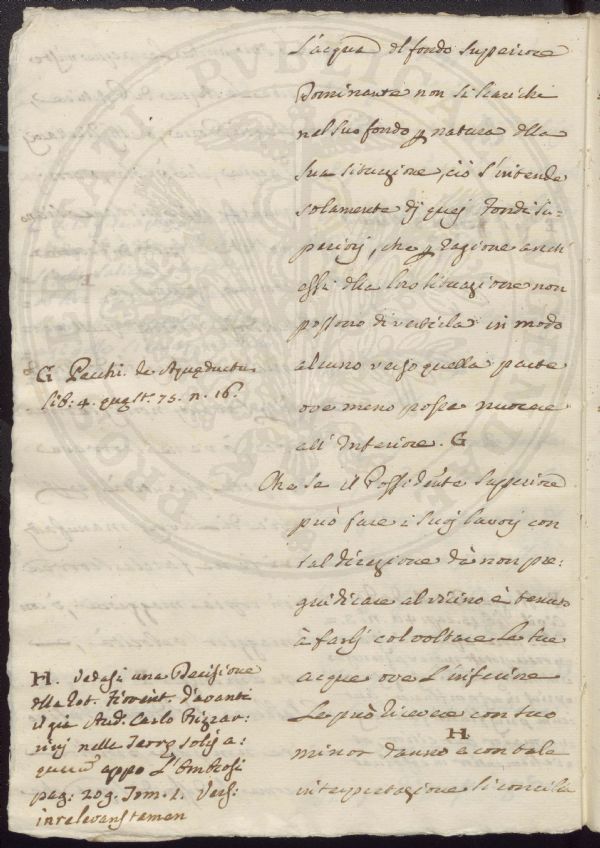 L'acqua del fondo Superiore
Dominante non si scarichi
nel suo fondo p natura della
sua situazione, ciò s'intende
solamente dj quej Fondi Su-
periorj, che p ragione anch'
essi della loro situazione non
possono divertirla in modo
alcuno verso quella parte
ove meno possa nuocere
all' Inferiore. G
Che se il Possidente Superiore
può fare i suoj lavorj con
tal direzione di non pre:
giudicare al vicino è tenuto
à farlj col voltare le sue
acque ove L'inferiore
Le può ricevere con suo
minor danno H e con tale
interpretazione si concilia
G Pecchi. de Aquæductu
lib: 4. quæst. 75. n. 16.
H. Vedasi una Decisione
della Rot. Fiorent. d'avanti
il già Aud. Carlo Bizzar:
rinj nelle
appo L'Ambrosi
pag: 209. Tom. 1. Vers: